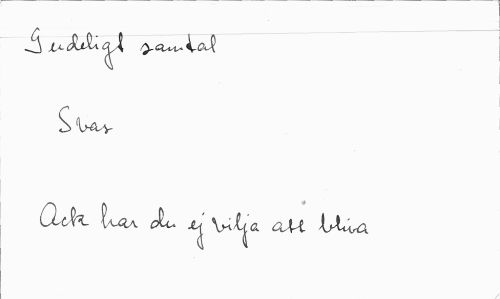 Gudeligt samtal
Svar
Ack har du ej vilja att bliva